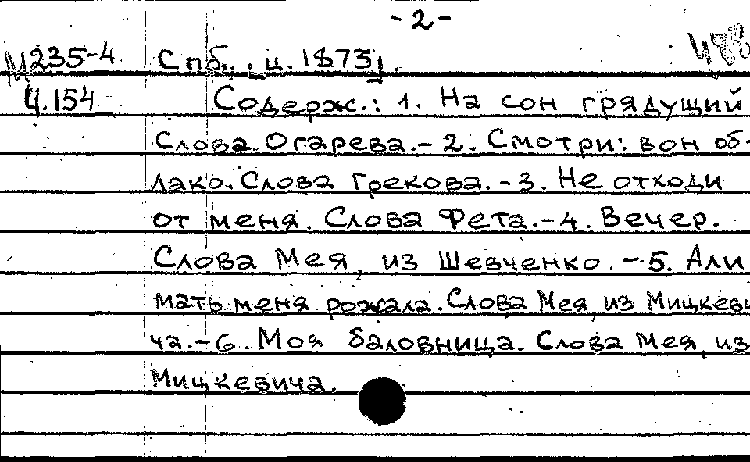 -2-
М235-4 Спб., ц. 1873. 488
Ч.154 Содерж.: 1. На сон грядущий
Слова Огарева.-2. Смотри: вон об-
лако. Слова Грекова.-3. Не отходи
от меня. Слова Фета.-4. Вечер.
Слова Мея, из Шевченко.-5. Али
мать меня рожала. Слова Мея, из Мицкеви
ча.-6. Моя баловница. Слова Мея, из
Мицкевича.